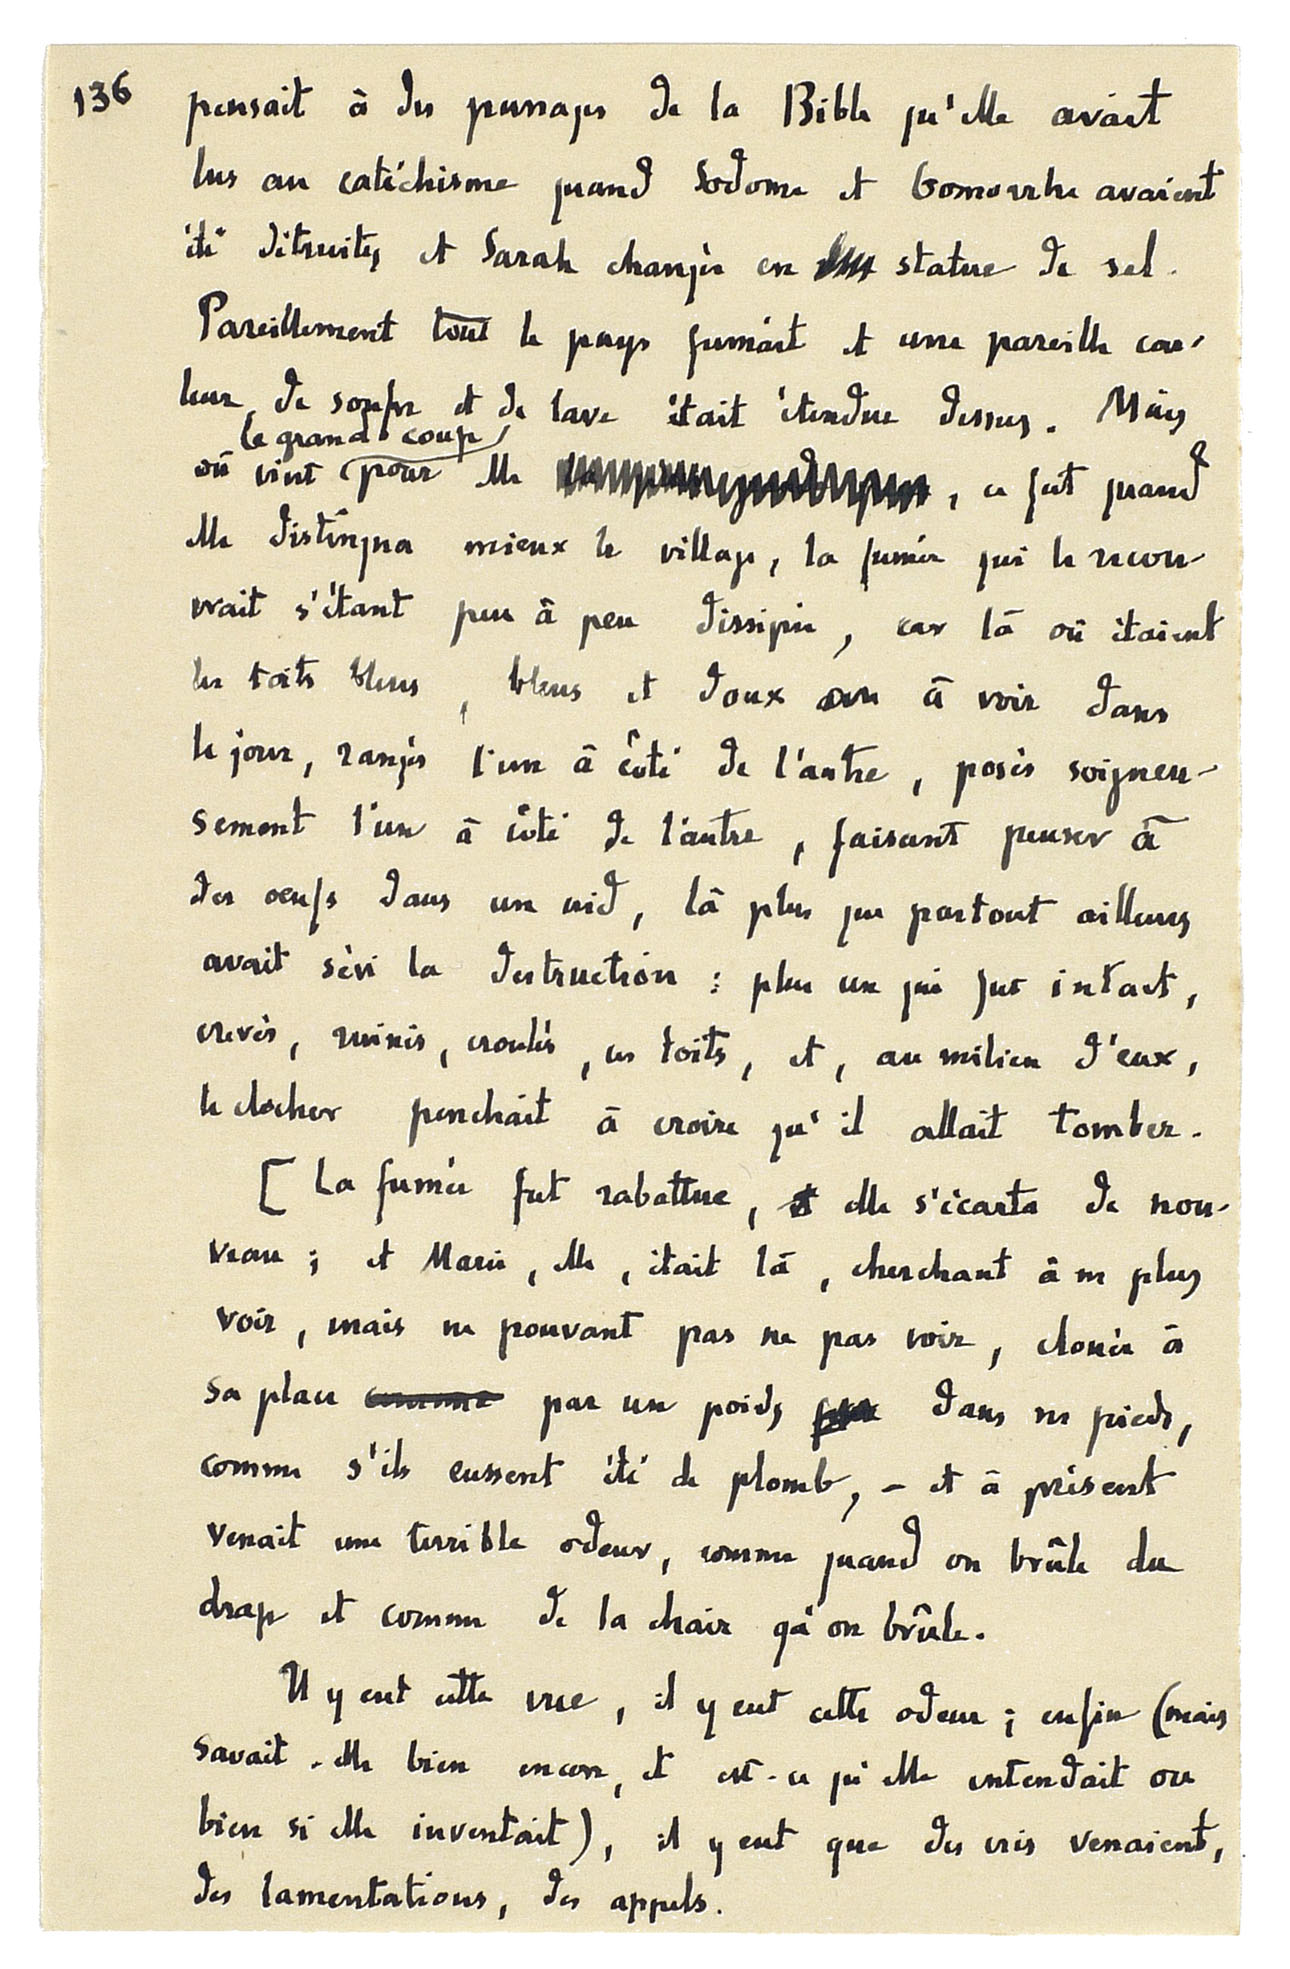 136
pensait à des passages de la Bible qu'elle avait
lus au catéchisme quand Sodome et Gomorrhe avaient
été détruites et Sarah changée en statue de sel.
Pareillement tout le pays fumait et une pareille cou-
leur de soufre et de lave était étendue dessus. Mais
le grand coup
où vint pour elle , ce fut quand
elle distingua mieux le village, la fumée qui le recou-
vrait s'étant peu à peu dissipée, car là où étaient
les toits bleus, bleus et doux à voir dans
le jour, rangés l'un à côté de l'autre, posés soigneu-
sement l'un à côté de l'autre, faisant penser à
des oeufs dans un nid, là plus que partout ailleurs
avait sévi la destruction : plus un qui fut intact,
crevés, ruinés, croulés, ces toits, et, au milieu d'eux,
le clocher penchait à croire qu'il allait tomber.
[ La fumée fut rabattue, et elle s'écarta de nou-
veau ; et Marie, elle, était là, cherchant à ne plus
voir, mais ne pouvant pas ne pas voir, clouée à
sa place comme par un poids dans ses pieds,
comme s'ils eussent été de plomb, – et à présent
venait une terrible odeur, comme quand on brûle du
drap et comme de la chair qu'on brûle.
Il y eut cette vue, il y eut cette odeur ; enfin (mais
savait-elle bien encore, et est-ce qu'elle entendait ou
bien si elle inventait), il y eut que des cris venaient,
des lamentations, des appels.